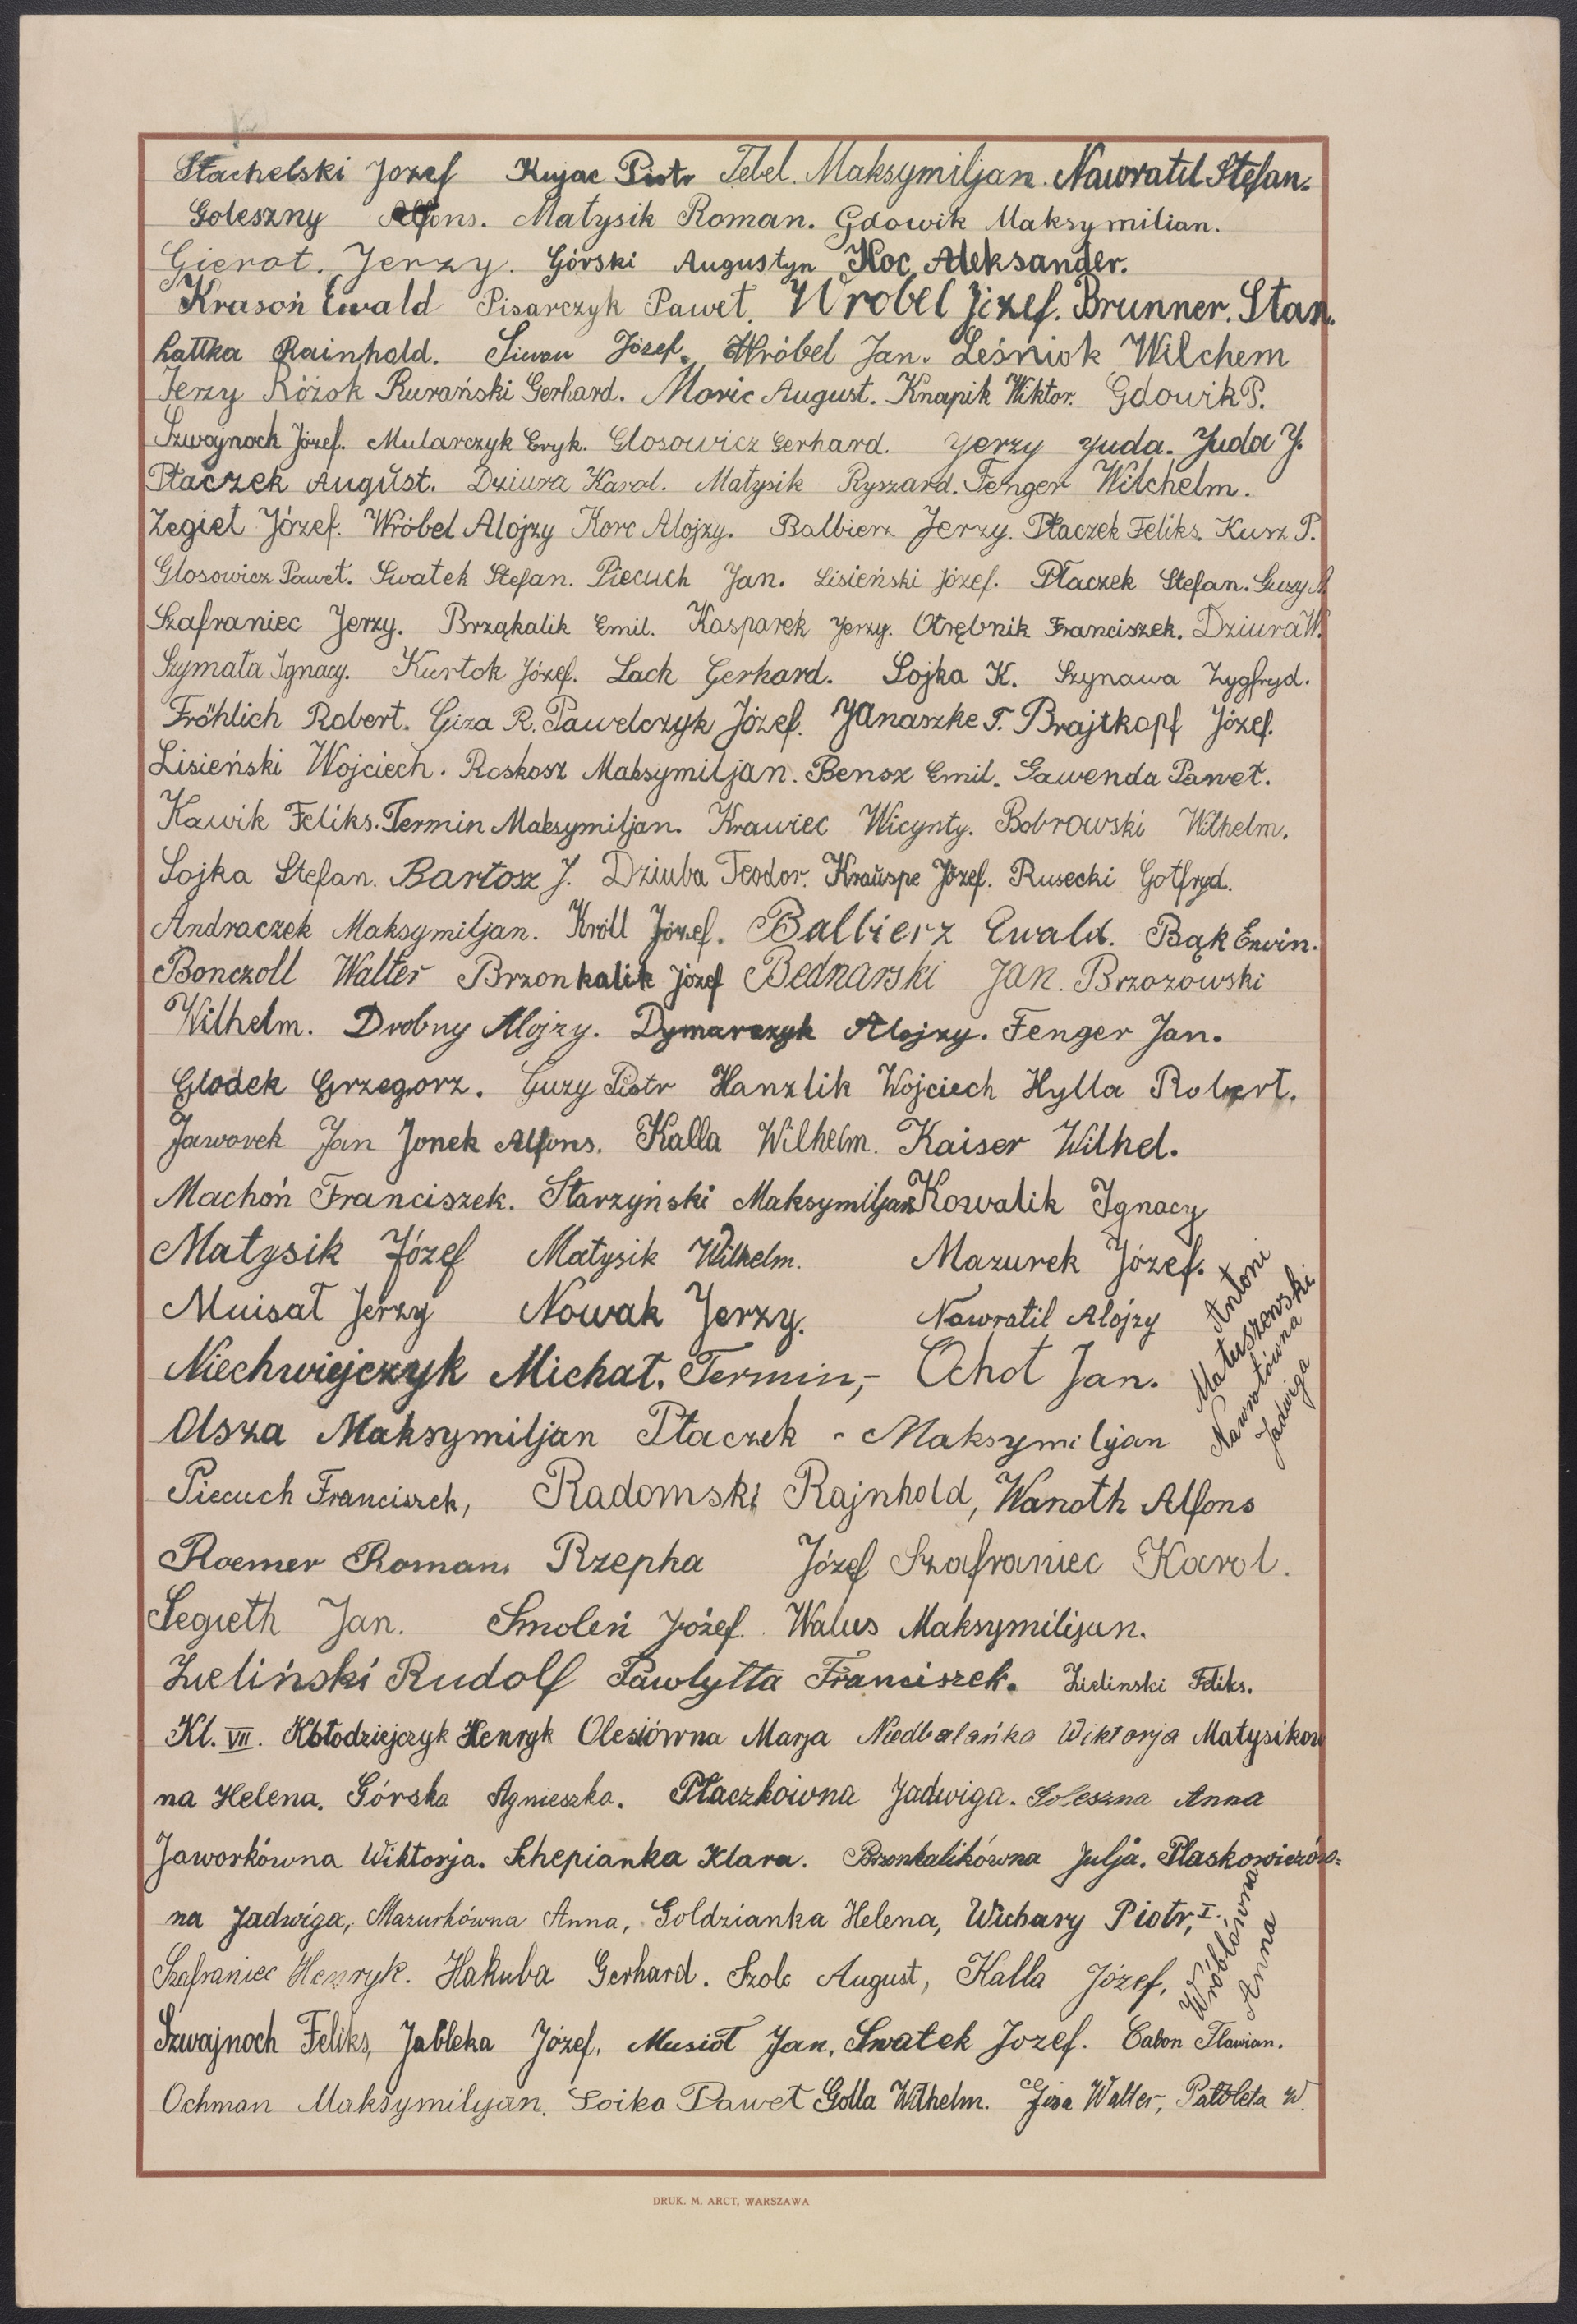 Stachelski Jozef Kujac Piotr Tebel. Maksymiljan. Nawratil Stefan.
Goleszny Alfons. Matysik Roman. Gdowik Maksymilian.
Gierot. Jerzy. Górski Augustyn Koc Aleksander.
Krasoń Ewald Pisarczyk Paweł. Wrobel Jizef. Brunner. Stan.
Rainhold. Siwoń Józef. Wróbel Jan. Leśniok Wilchem
Jerzy Różok Rurański Gerhard. Moric August. Knapik Wiktor. Gdowik P.
Szwajnoch Józef. Mularczyk Eryk. Glosowicz Gerhard. Jerzy Juda. Juda J.
Płaczek August. Dziura Karol. Matysik Ryszard. Fenger Wilchelm.
Zegiet Józef. Wróbel Alojzy Korc Alojzy. Balbierz Jerzy. Płaczek Feliks. Kusz P.
Glosowicz Paweł. Swatek Stefan. Piecuch Jan. Lisieński Józef. Płaczek Stefan. Guzy
Szafraniec Jerzy. Brząkalik Emil. Kasparek Jerzy. Otrębnik Franciszek. Dziura W.
Szymała Ignacy. Kurtok Józef. Lach Gerhard. Sojka K. Szynawa Zygfryd.
Fröhlich Robert. Giza R. Pawelczyk Józef. Janaszke T. Brajtkopf Józef.
Lisieński Wojciech. Roskosz Maksymiljan. Bensz Emil. Gawenda Paweł.
Kawik Feliks. Termin Maksymiljan. Krawiec Wicynty. Bobrowski Wilhelm.
Sojka Stefan. Bartosz J. Dziuba Teodor. Krauspe Józef. Rusecki Gotfryd.
Andraczek Maksymiljan. Kröll Józef. Balbierz Ewald. Bąk Erwin.
Bonczoll Walter Brzonkalik Józef Bednarski Jan. Brzozowski
Wilhelm. Drobny Alojzy. Dymarczyk Alojzy. Fenger Jan.
Glodek Grzegorz. Guzy Piotr Hanzlik Wojciech Hylla Robert.
Jaworek Jan Jonek Alfons. Kalla Wilhelm. Kaiser Wilhel.
Machoń Franciszek. Starzyński Maksymiljan Kowalik Ignacy
Matysik Józef Matysik Wilhelm. Mazurek Józef.
Muisał Jerzy Nowak Jerzy. Nawratil Alojzy
Matuszewski Antoni
Nawrotówna Jadwiga
Niechwiejczyk Michał. Termin,- Ochot Jan.
Olsza Maksymiljan Płaczek - Maksymiljan
Piecuch Franciszek, Radomski Rajnhold, Wanoth Alfons
Roemer Roman. Rzepka Józef Szafraniec Karol.
Segieth Jan. Smoleń Józef. Walus Maksymilijan.
Zieliński Rudolf Pawlytta Franciszek. Zielinski Feliks.
Kl. VII. Kołodziejczyk Henryk Olesiówna Marja Niedbalańka Wiktorja Matysików
na Helena. Górska Agnieszka. Płaczkówna Jadwiga. Goleszna Anna
Jaworkówna Wiktorja. Schepianka Klara. Brzonkalikówna Julja. Plaskowiczów=
na Jadwiga, Mazurkówna Anna, Goldzianka Helena, Wichary Piotr, I.
Wróblówna Anna
Szafraniec Henryk. Hakuba Gerhard. Szolc August, Kalla Józef,
Szwajnoch Feliks, Jableka Józef, Musioł Jan, Swatek Jozef. Cabon Flawian.
Ochman Maksymilijan. Soika Paweł Golla Wilhelm. Giza Walter, W.
DRUK. M. ARCT, WARSZAWA